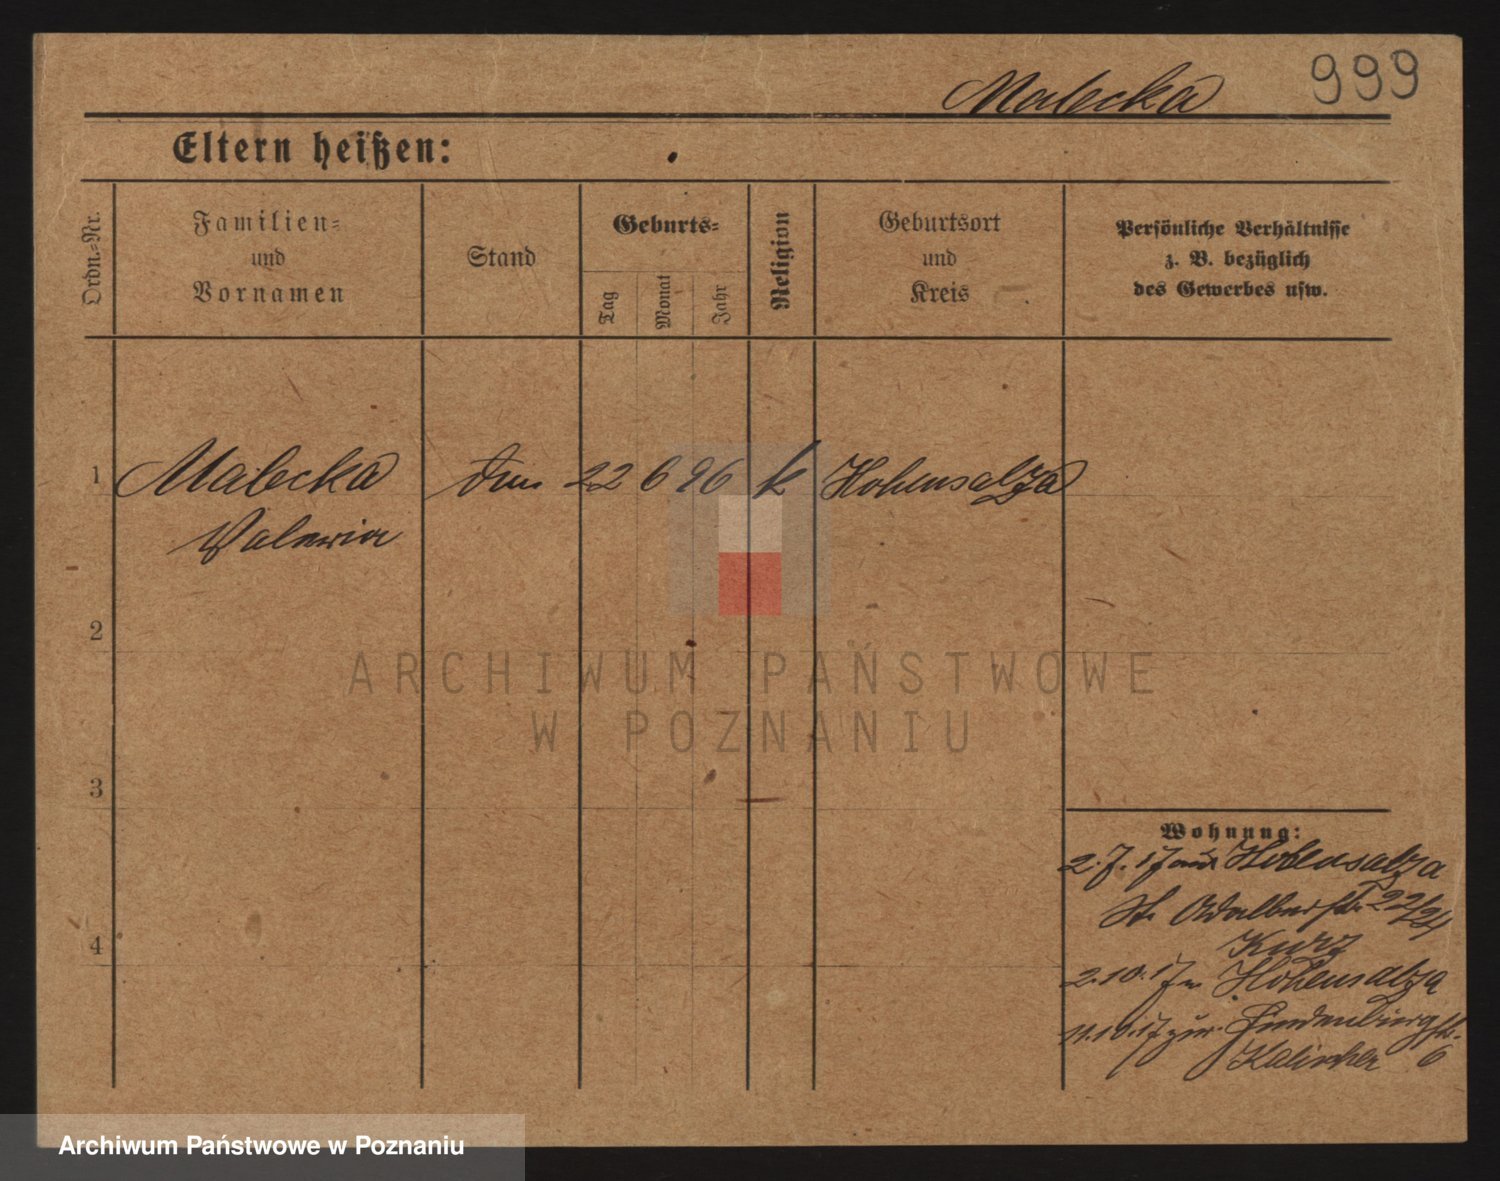 Malecka 999
Eltern heißen:
Ordn.-Nr.
Familien-
und
Vornamen
Stand
Geburts-
Tag
Monat
Jahr
Religion
Geburtsort
und
Kreis
Persönliche Verhältnisse
z. B. bezüglich
des Gewerbes usw.
1 Malecka 22 6 96 k Hohensalza
Valeria
2
ARCHIWUM PAŃSTWOWE
W POZNANIU
3
Wohnung:
2.7.17 aus Hohensalza
St. Adalbertstr. 22/24
Kurz
2.10.17 n. Hohensalza
11.10.17 zur. Hindenburgstr.
Kalischer 6
4
Archiwum Państwowe w Poznaniu